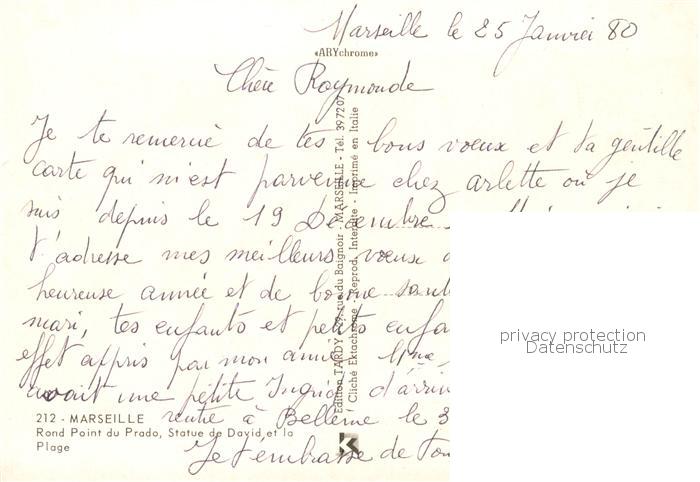 Marseille le 25 Janvier 80
«ARYchrome»
Chère Raymonde
Je te remercie de tes bons voeux et ta gentille
carte qui m'est parvenue chez arlette où je
suis depuis le 19 Décembre
t'adresse mes meilleurs voeux
heureuse année et de bonne santé
mari, tes enfants et petits enfa
effet appris par mon
avait une petite Ingrid d'arri
rentre à Bellême le 3
Je t'embrasse de
212 - MARSEILLE
Rond Point du Prado, Statue de David et la
Plage
Edition TARDY rue du Baignoir - MARSEILLE - Tél. 397207
Cliché Ektachrome - Reprod. Interdite - Imprimé en Italie
privacy protection
Datenschutz